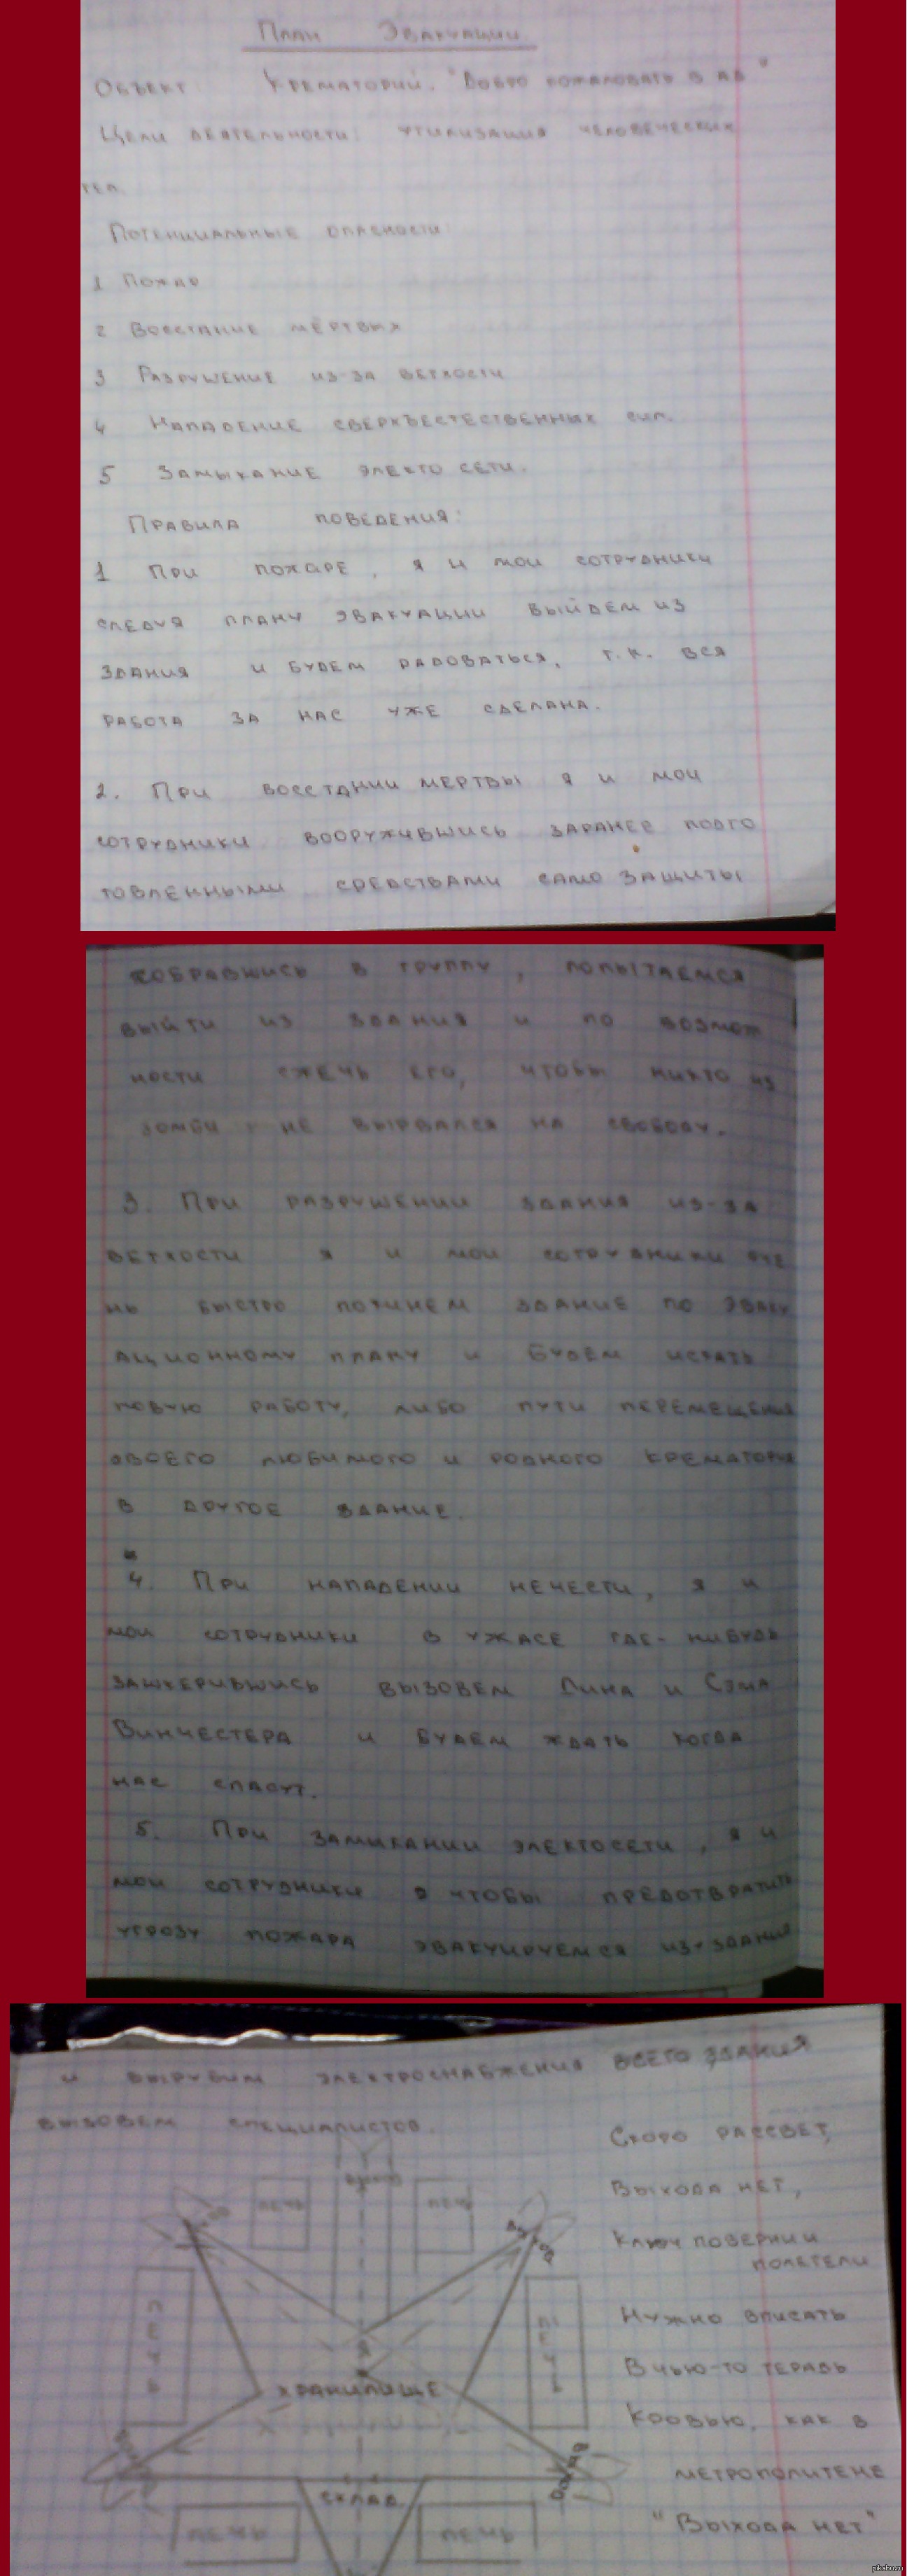 План Эвакуации
Объект Крематорий. "Добро пожаловать в Ад"
Цели деятельности: утилизация человеческих
тел.
Потенциальные опасности
1 Пожар
2 Восстание мёртвых
3 Разрушение из-за ветхости
4 Нападение сверхъестественных сил.
5 Замыкание электо сети.
Правила поведения:
1 При пожаре, я и мои сотрудники
следуя плану эвакуации выйдем из
здания и будем радоваться, т.к. вся
работа за нас уже сделана.
2. При восстании мертвы я и мои
сотрудники вооружившись заранее подго
товленными средствами само защиты
собравшись в группу, попытаемся
выйти из здания и по возмож
ности сжечь его, чтобы никто из
зомби не вырвался на свободу.
3. При разрушении здания из-за
ветхости я и мои сотрудники оче
нь быстро покинем здание по эваку
ационному плану и будем искать
новую работу, либо пути перемещения
своего любимого и родного крематория
в другое здание.
4. При нападении нечести, я и
мои сотрудники в ужасе где-нибудь
зашкерившись вызовем Дина и Сэма
Винчестера и будем ждать когда
нас спасут.
5. При замыкании электосети, я и
мои сотрудники чтобы предотвратить
угрозу пожара эвакуируемся из здания
и вырубим электроснабжения всего здания
вызовем специалистов.
Скоро рассвет,
Выхода нет,
Ключ поверни и
полетели
Нужно вписать
В чью-то терадь
Кровью, как в
метрополитене
"Выхода нет"
выход
печь
печь
выход
печь
печь
Я
хранилище
выход
склад
печь
печь
pikabu.ru